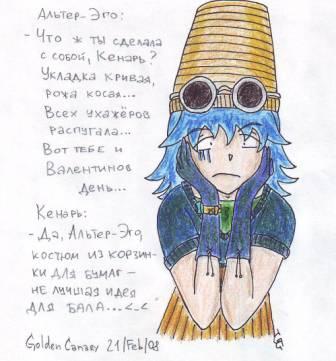 Альтер-Эго:
- Что ж ты сделала
с собой, Кенарь?
Укладка кривая,
рожа косая...
Всех ухажёров
распугала...
Вот тебе и
Валентинов
день...
Кенарь:
- Да, Альтер-Эго,
костюм из корзин-
ки для бумаг –
не лучшая идея
для бала...<_<
Golden Canary 21/Feb/08